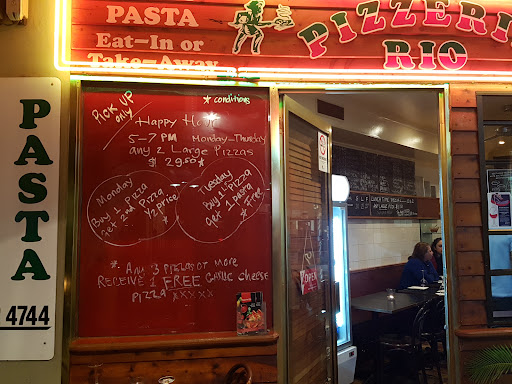 PASTA
Eat-In or
Take-Away
PIZZERIA
RIO
PASTA
4744
PICK UP
ONLY
* conditions
Happy Hour
5-7 PM Monday-Thursday
any 2 Large Pizzas
$ 29.50*
Monday
Buy 1 Pizza
Get 2nd Pizza
1/2 price
Tuesday
Buy 1 Pizza
Get 1 pasta
Free
*. Any 3 pizzas or more
RECEIVE 1 FREE Garlic cheese
Pizza xxxxx
OPEN